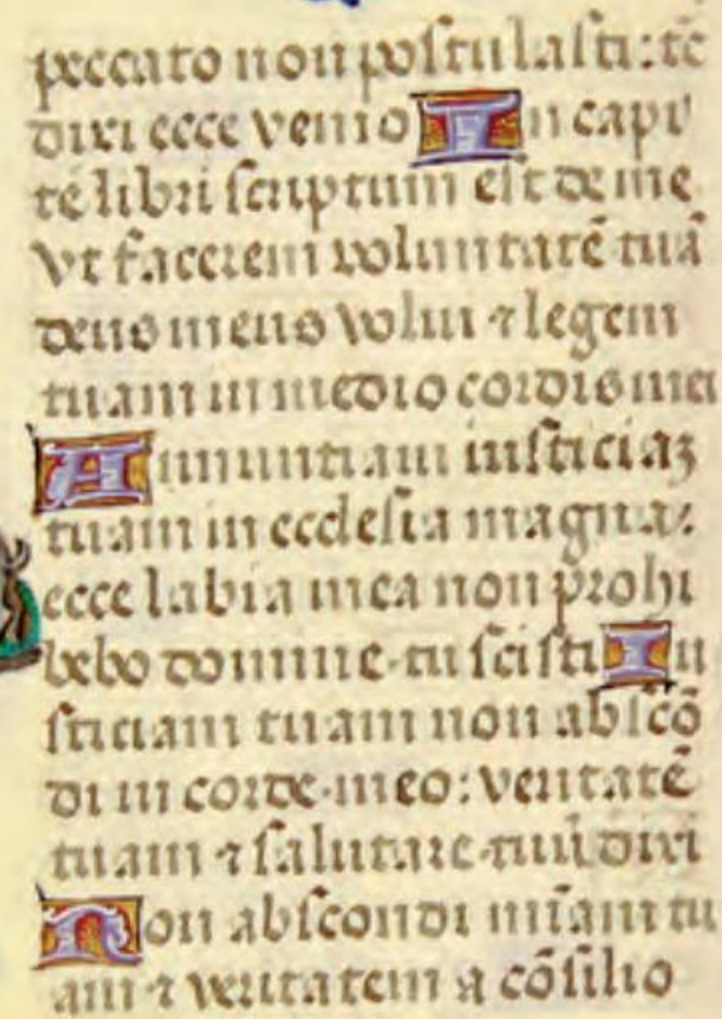 peccato non postulasti: tē
dixi ecce venio In capi
te libri scriptum est de me
vt facerem voluntatē tuā
deus meus volui ⁊ legem
tuam in medio cordis mei
Annuntiaui iusticiaꝫ
tuam in ecclesia magna:
ecce labia mea non prohi
bebo domine tu scisti Iu
sticiam tuam non abscō
di in corde meo: veritatē
tuam ⁊ salutare tuū dixi
Non abscondi mīam tu
am ⁊ veritatem a cōsilio